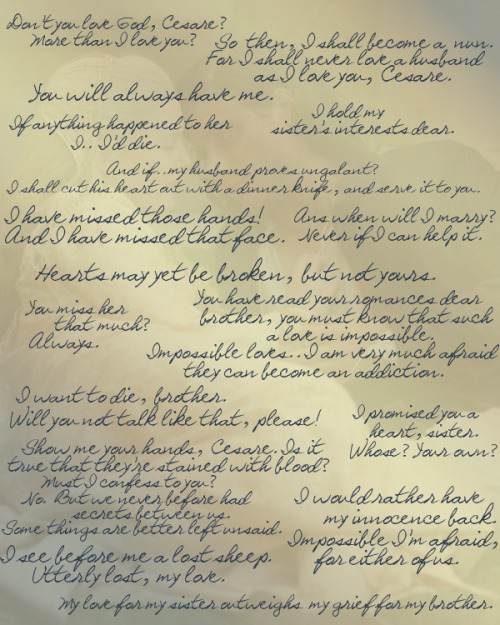 Don't you love God, Cesare?
More than I love you?
So then, I shall become a nun.
For I shall never love a husband
as I love you, Cesare.
You will always have me.
If anything happened to her
I.. I'd die.
I hold my
sister's interests dear.
And if..my husband proves ungalant?
I shall cut his heart out with a dinner knife, and serve it to you.
I have missed those hands!
And I have missed that face.
Ans when will I marry?
Never if I can help it.
Hearts may yet be broken, but not yours.
You miss her
that much?
Always.
You have read your romances dear
brother, you must know that such
a love is impossible.
Impossible loves..I am very much afraid
they can become an addiction.
I want to die, brother.
Will you not talk like that, please!
I promised you a
heart, sister.
Whose? Your own?
Show me your hands, Cesare. Is it
true that they're stained with blood?
Must I confess to you?
No. But we never before had
secrets between us.
Some things are better left unsaid.
I would rather have
my innocence back.
Impossible I'm afraid,
for either of us.
I see before me a lost sheep.
Utterly lost, my love.
My love for my sister outweighs my grief for my brother.